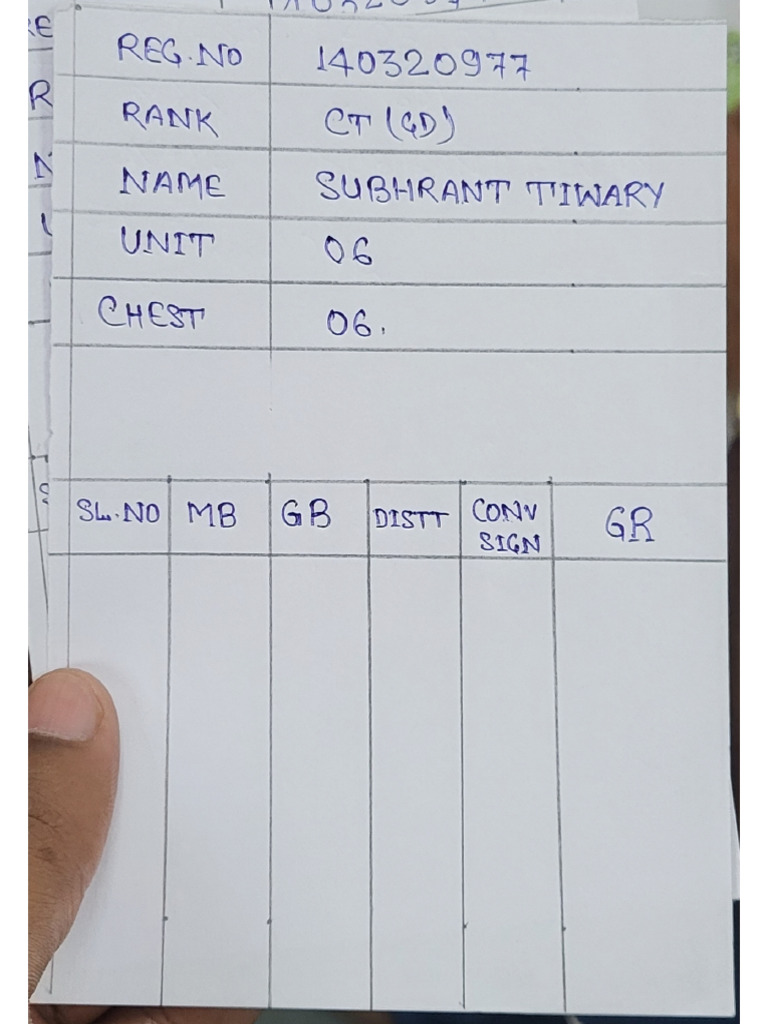 REG.NO 140320977
RANK CT (GD)
NAME SUBHRANT TIWARY
UNIT 06
CHEST 06.
SL.NO MB GB DISTT CONV SIGN GR